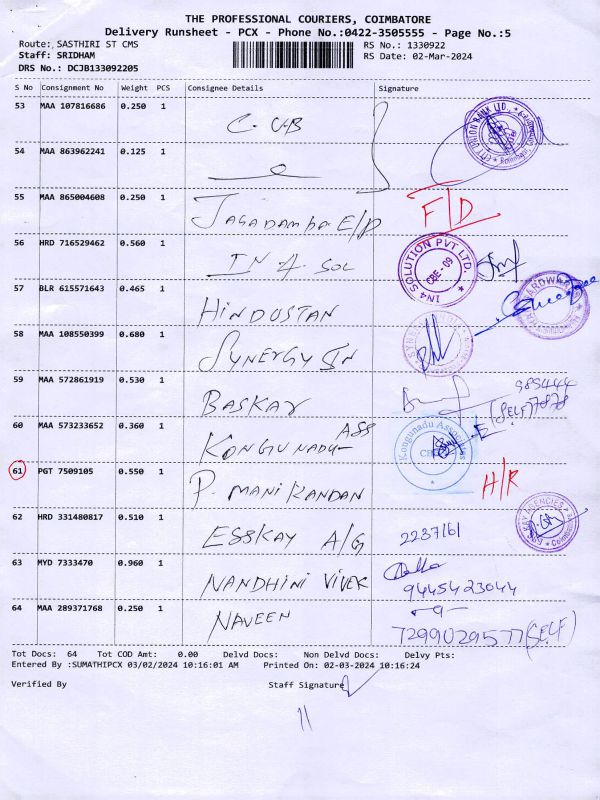 THE PROFESSIONAL COURIERS, COIMBATORE
Delivery Runsheet - PCX - Phone No.:0422-3505555 - Page No.:5
Route: SASTHIRI ST CMS
RS No.: 1330922
Staff: SRIDHAM
RS Date: 02-Mar-2024
DRS No.: DCJB133092205
S No Consignment No Weight PCS Consignee Details Signature
53 MAA 107816686 0.250 1
C. UB
CITY UNION BANK LTD.
54 MAA 863962241 0.125 1
55 MAA 865004608 0.250 1
Jagadamba E/D F/D
56 HRD 716529462 0.560 1
IN 4 SOL
1N4 SOLUTION PVT LTD.
CBE - 09
57 BLR 615571643 0.465 1
HINDUSTAN
HARDWARE
58 MAA 108550399 0.680 1
SYNERGY IN
59 MAA 572861919 0.530 1
BASKAR
985444
(SELF) 77878
60 MAA 573233652 0.360 1
KONGUNADU ASS
Kongunadu Associates
61 PGT 7509105 0.550 1
P. MANIKANDAN H/R
62 HRD 331480817 0.510 1
ESSKAY A/G 2237161
KAY AGENCIES
63 MYD 7333470 0.960 1
NANDHINI VIVEK
9445423044
64 MAA 289371768 0.250 1
NAVEEN
7299029577 (SELF)
Tot Docs: 64 Tot COD Amt: 0.00 Delvd Docs: Non Delvd Docs: Delvy Pts:
Entered By :SUMATHIPCX 03/02/2024 10:16:01 AM Printed On: 02-03-2024 10:16:24
Verified By Staff Signature